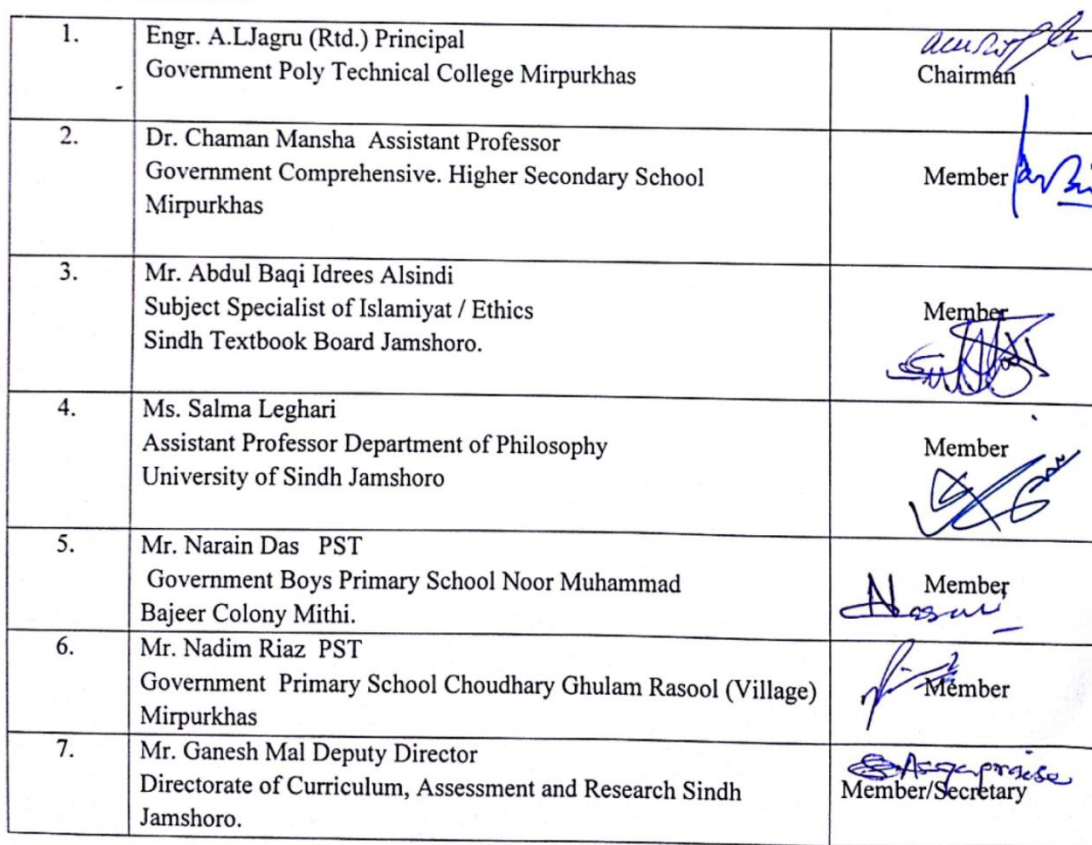 1. Engr. A.LJagru (Rtd.) Principal
Government Poly Technical College Mirpurkhas
Chairman
2. Dr. Chaman Mansha Assistant Professor
Government Comprehensive. Higher Secondary School
Mirpurkhas
Member
3. Mr. Abdul Baqi Idrees Alsindi
Subject Specialist of Islamiyat / Ethics
Sindh Textbook Board Jamshoro.
Member
4. Ms. Salma Leghari
Assistant Professor Department of Philosophy
University of Sindh Jamshoro
Member
5. Mr. Narain Das PST
Government Boys Primary School Noor Muhammad
Bajeer Colony Mithi.
Member
6. Mr. Nadim Riaz PST
Government Primary School Choudhary Ghulam Rasool (Village)
Mirpurkhas
Member
7. Mr. Ganesh Mal Deputy Director
Directorate of Curriculum, Assessment and Research Sindh
Jamshoro.
Member/Secretary